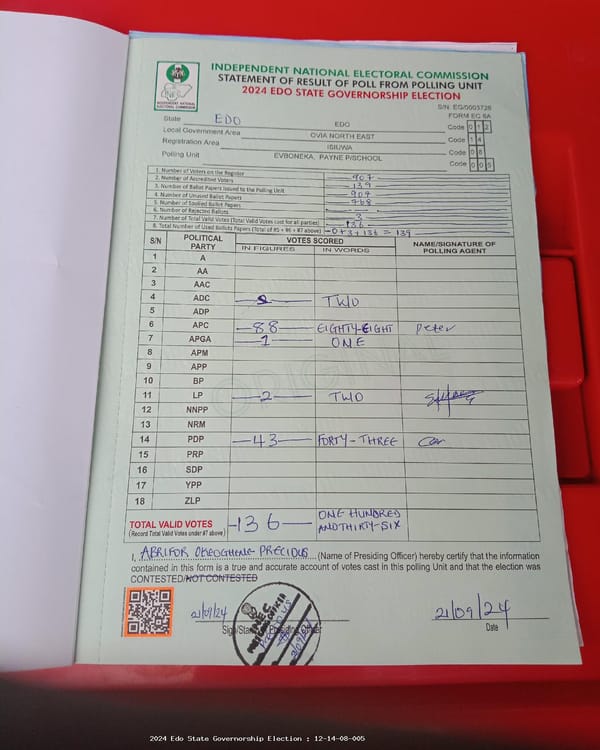 INDEPENDENT NATIONAL ELECTORAL COMMISSION
STATEMENT OF RESULT OF POLL FROM POLLING UNIT
2024 EDO STATE GOVERNORSHIP ELECTION
S/N: EG/0003728
FORM EC 8A
State EDO EDO Code 0 1 2
Local Government Area OVIA NORTH EAST Code 1 4
Registration Area ISIUWA Code 0 8
Polling Unit EVBONEKA, PAYNE P/SCHOOL Code 0 0 5
1. Number of Voters on the Register 907
2. Number of Accredited Voters 139
3. Number of Ballot Papers Issued to the Polling Unit 907
4. Number of Unused Ballot Papers 768
5. Number of Spoiled Ballot Papers
6. Number of Rejected Ballots 3
7. Number of Total Valid Votes (Total Valid Votes cast for all parties) 136
8. Total Number of Used Ballots Papers (Total of #5 + #6 + #7 above) 0+3+136 = 139
S/N POLITICAL PARTY VOTES SCORED NAME/SIGNATURE OF POLLING AGENT
IN FIGURES IN WORDS
1 A
2 AA
3 AAC
4 ADC 2 TWO
5 ADP
6 APC 88 EIGHTY-EIGHT Peter
7 APGA 1 ONE
8 APM
9 APP
10 BP
11 LP 2 TWO
12 NNPP
13 NRM
14 PDP 43 FORTY-THREE
15 PRP
16 SDP
17 YPP
18 ZLP
TOTAL VALID VOTES 136 ONE HUNDRED
(Record Total Valid Votes under #7 above) AND THIRTY-SIX
I, ABRIFOR OKEOGHENE PRECIOUS (Name of Presiding Officer) hereby certify that the information
contained in this form is a true and accurate account of votes cast in this polling Unit and that the election was
CONTESTED/NOT CONTESTED
21/09/24 21/09/24
Sign/Stamp Presiding Officer Date
2024 Edo State Governorship Election : 12-14-08-005